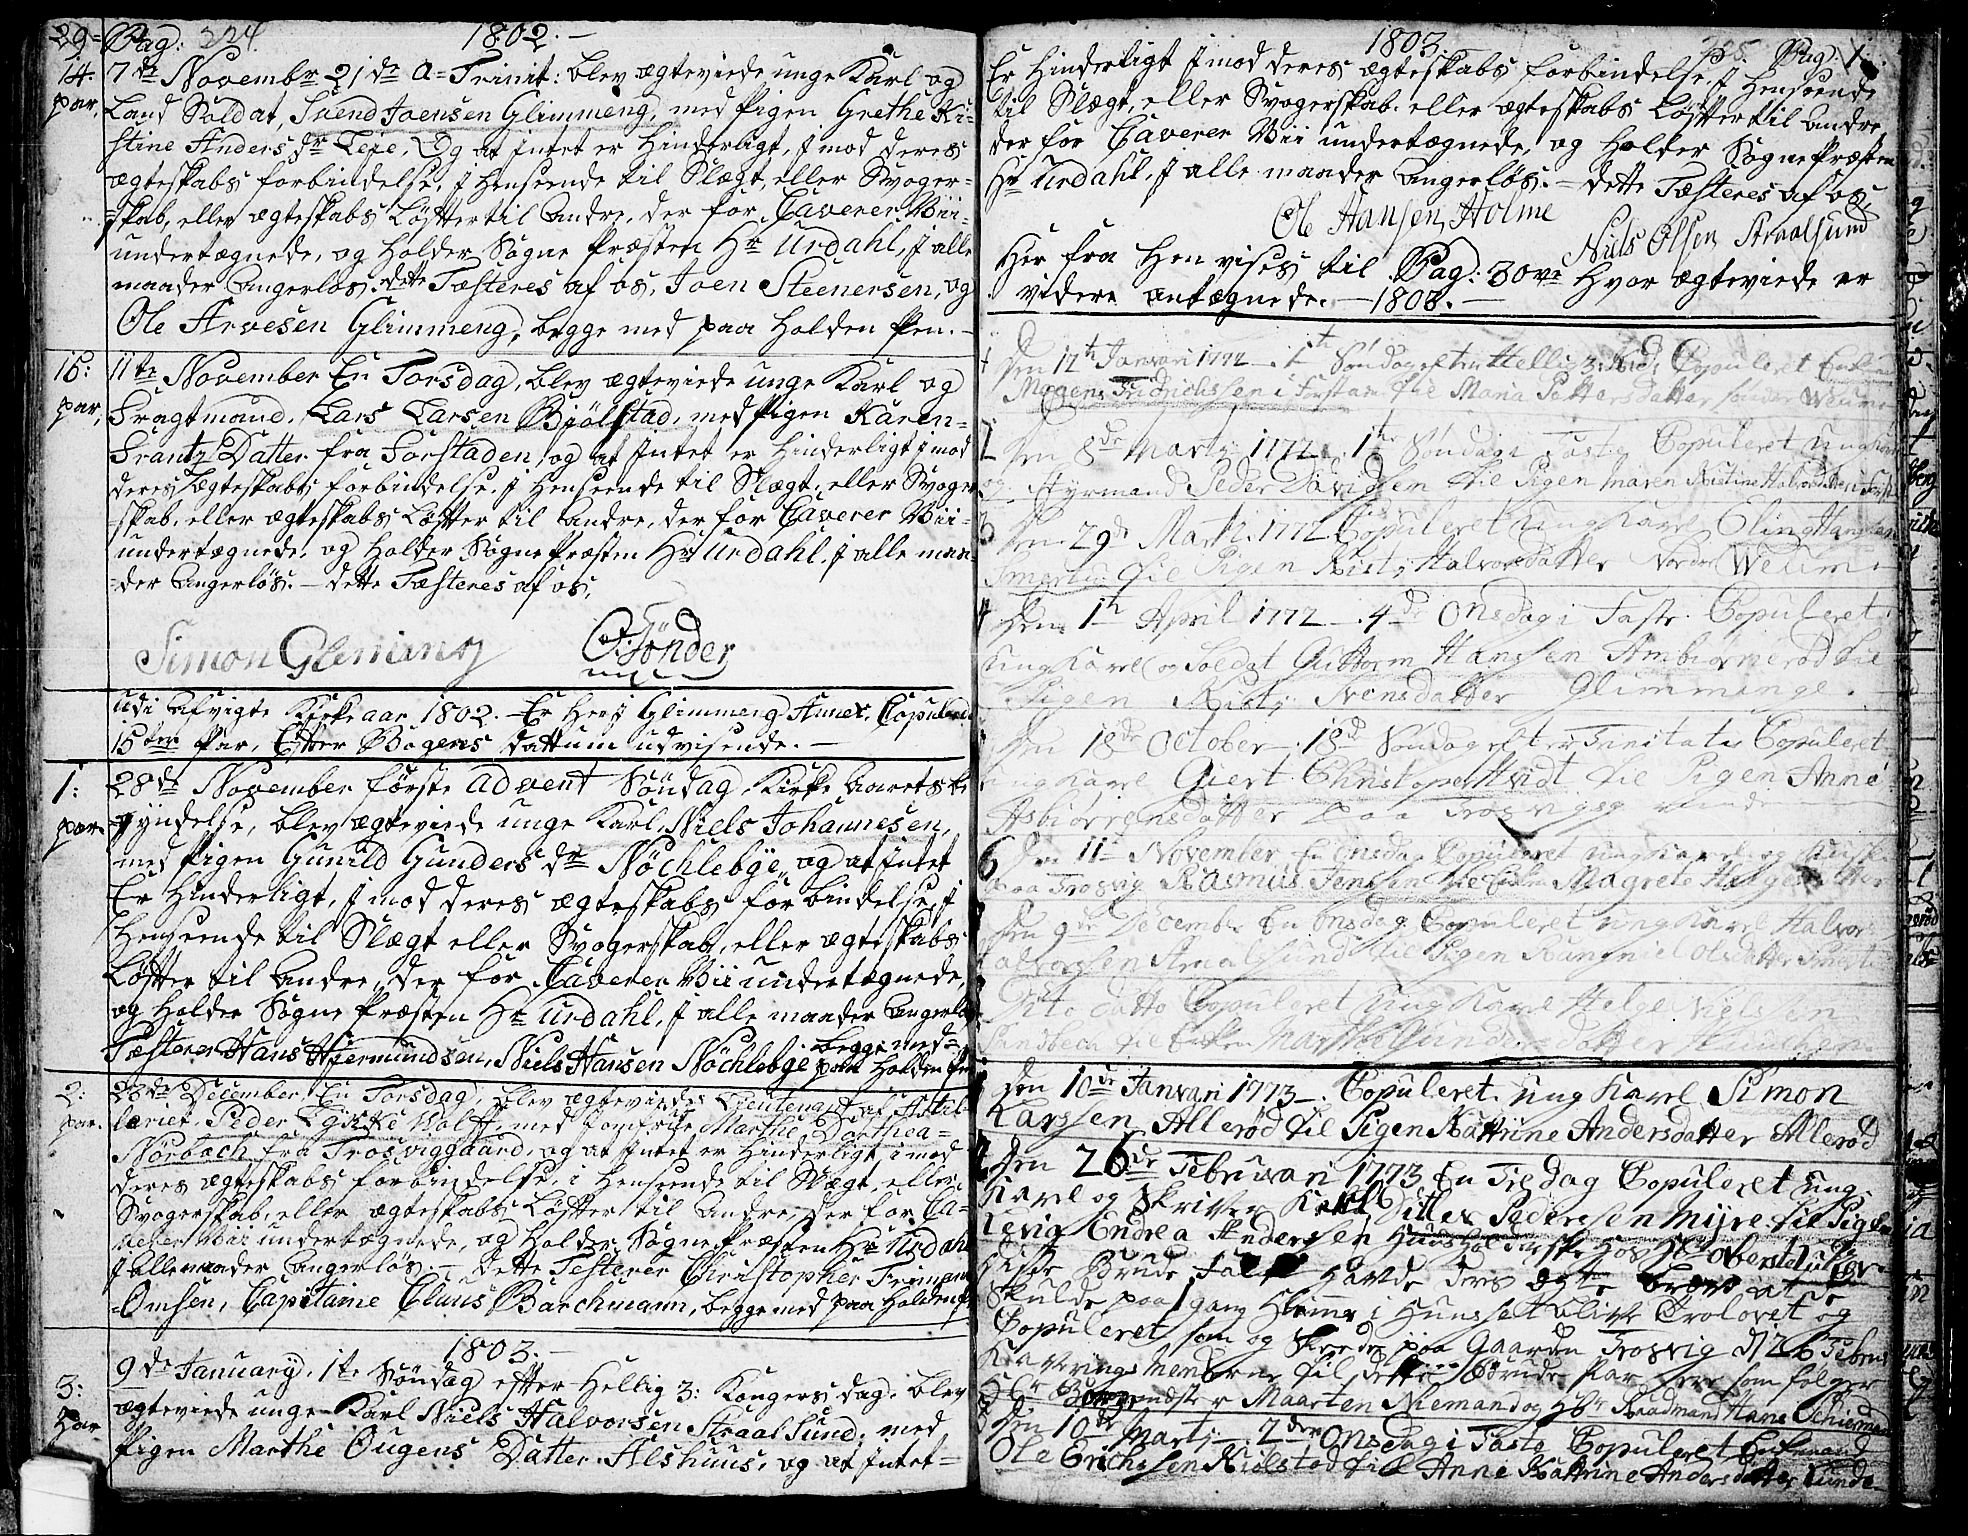 29= Pag: 224. 1802. –
14. 7de Novembr 21de a= Trinit: blev ægteviede unge Karl og
par, Land Soldat, Svend Joensen Glimmeng, med Pigen Grethe Ki=
stine Anders dr Leie, Og at Intet er Hinderligt, I mod deres
ægteskabs forbindelse, I Henseende til Slægt, eller Svoger=
=skab, eller ægteskabs Løfter til Andre, der for Caverer Vii=
undertegnede, og Holder Sogne Præsten Hr Urdahl, I alle
maader Angerløs. dette Tæsteres af os, Joen Steenersen, og
Ole Arvesen Glimmeng, begge med paa Holden Pen. –
15: 11te November En Torsdag, blev ægteviede unge Karl og
par, Fragtmand, Lars Larsen Bjølstad, med Pigen Karen=
Frantz Datter fra Forstaden, og at Intet er Hinderligt I mod
deres Ægteskabs forbindelse, I Henseende til Slægt, eller Svoger
=skab, eller ægteskabs Løfter til Andre, der for Caverer Vii=
undertegnede, og Holder Sogne Præsten Hr Urdahl, I alle maa=
=der Angerløs. – dette Tæsteres af os,
Simon Glemmeng
Udi Afvigte Kirke aar 1802. – Er her I Glimmeng Annex, Copuleret
15ten Par, Efter Bogens Dattum udvisende. –
1: 28de November første Advent Søndag, Kirke Aarets be
par. gyndelse, blev ægteviede unge Karl, Niels Johannesen,
med Pigen Gunild Gunders dr Nøchlebye, og at Intet
Er Hinderligt, I mod deres ægteskabs for bindelse, I
Henseende til Slægt eller Svogerskab, eller ægteskabs
Løfter til Andre, der for Caverer Vii undertegnede,
og Holder Sogne Præsten Hr Urdahl, I alle maader Angerløs
Tæsterer Hans Hiermundsen, Niels Hansen Nøchlebye begge med paa Holden Pen
2: 28de December, En Torsdag, blev ægteviede Lieutenant af Artil=
par. leriet, Peder Lykke Wolff, med Jomfrue Marthe Dorthea=
Nørbach fra Trosviggaard, og at Intet er Hinderligt, i mod
deres ægteskabs forbindelse, i Henseende til Slægt, eller
Svogerskab, eller ægteskabs Løfter til Andre, der for Ca=
verer Vii undertegnede, og Holder Sogne Præsten Hr Urdahl
I alle maader Angerløs. – Dette Testerer Christopher Friman
=Omsen, Capitaine Claus Barchmann, begge med paa Holden Pen
1803. –
3: 9de January, 1te Søndag efter Hellig 3: Kongers dag, blev
Par ægteviede unge Karl Niels Halvorsen Straalsund, med
Pigen Marthe Ougens Datter Alshuus, og at Intet=
1803. 225. Pag: 1.
Er Hinderligt I mod deres ægteskabs forbindelse, I Henseende
til Slægt, eller Svogerskab, eller ægteskabs Løfter til Andre
der for Caverer Vii undertegnede, og Holder Sogne Præsten
Hr Urdahl, I alle maader Angerløs. – dette Tæsteres af os,
Ole Hansen Holme
Niels Olsen Straalsund
Her fra Hen vises til Pag: 30ve Hvor ægteviede er
videre antegnede. – 1803. –
1 Den 12th Januari 1772 – 1th Søndag efter Hellig 3. Kong. Copuleret
Mogens Fridrichssen i Forstaden til Maria Pettersdatter
2 Den 8de Marty 1772 . 1te Søndag i Faste Copuleret ung Karl
og Styrmand Peder Davidsen til Pigen Maren Kistine Halvorsdatter i
3 Den 29de Marty 1772 Copuleret ung Karl
til Pigen Kisti Halvorsdatter Nordre
4 Den 1th April 1772 – 4de Onsdag i Faste Copuleret
ung Karl og Soldat Guttorm Hanssen Ambiørnerød til
Pigen Kisti Svensdatter Glimminge.
Den 18de October – 18de Søndag efter Trinitatis Copuleret
ung Karl Giert Christopher Hvidt til Pigen Anne
Asbiørrensdatter paa Trosvig
6 Den 11te November En Onsdag Copuleret ung Karl og
paa Trosvig Rasmus Jenssen til Magrete
Den 9de December En Onsdag Copuleret ung Karl Halvor
Halvorssen til Pigen Olsdatter
Dito Datto Copuleret ung Karl Helge Nielssen
til Enken Marthe
1 Den 10de Januari 1773 – Copuleret ung Karl Simon
Larssen Allerød til Pigen Kattrine Andersdatter Allerød
2 Den 26de Februari 1773 En Fredag Copuleret ung
Karl og Skriver Ditlev Pedersen Myre til Pigen
Andrea Anderssen Huusholderske Hos
disse Brude Folk Havde deres at de
skulde paa 1 gang Hiemme i Huusset blive Trolovet og
Copuleret, som og skeede paa Gaarden Trosvig d 26 Febru
Caverings Mændene til dette Brude Par vare som følger
Maarten Nieman og Hr Raadmand Hans
3 Den 10de Marty – 2den Onsdag i Faste Copuleret Enkemand
Ole Erichssen Kiølstad til Anne Kattrine Andersdatter